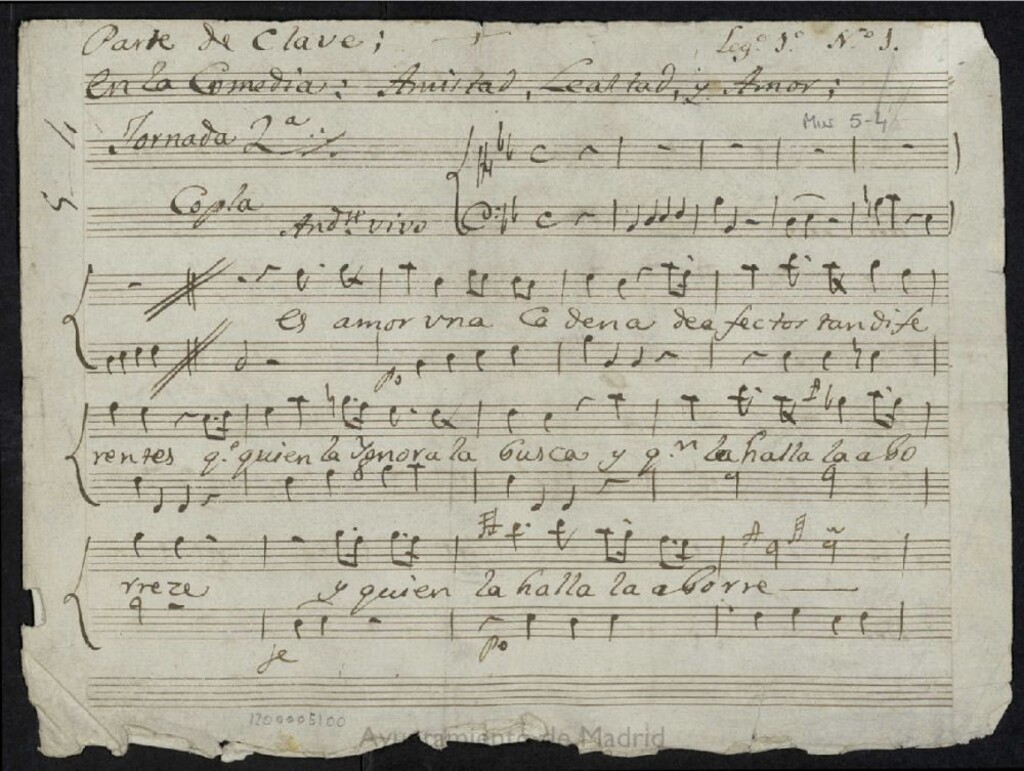 Parte de Clave; Leg.º 1.º N.º 1.
En la Comedia: Amistad, Lealtad, y Amor;
Mus 5-4
Jornada 2.ª
Copla And.te vivo
Es amor vna Cadena de afectos tan dife
Po
rentes q.e quien la Ignora la busca y q.n la halla la abo
rreze y quien la halla la aborre
fe Po
1200005100
Ayuntamiento de Madrid